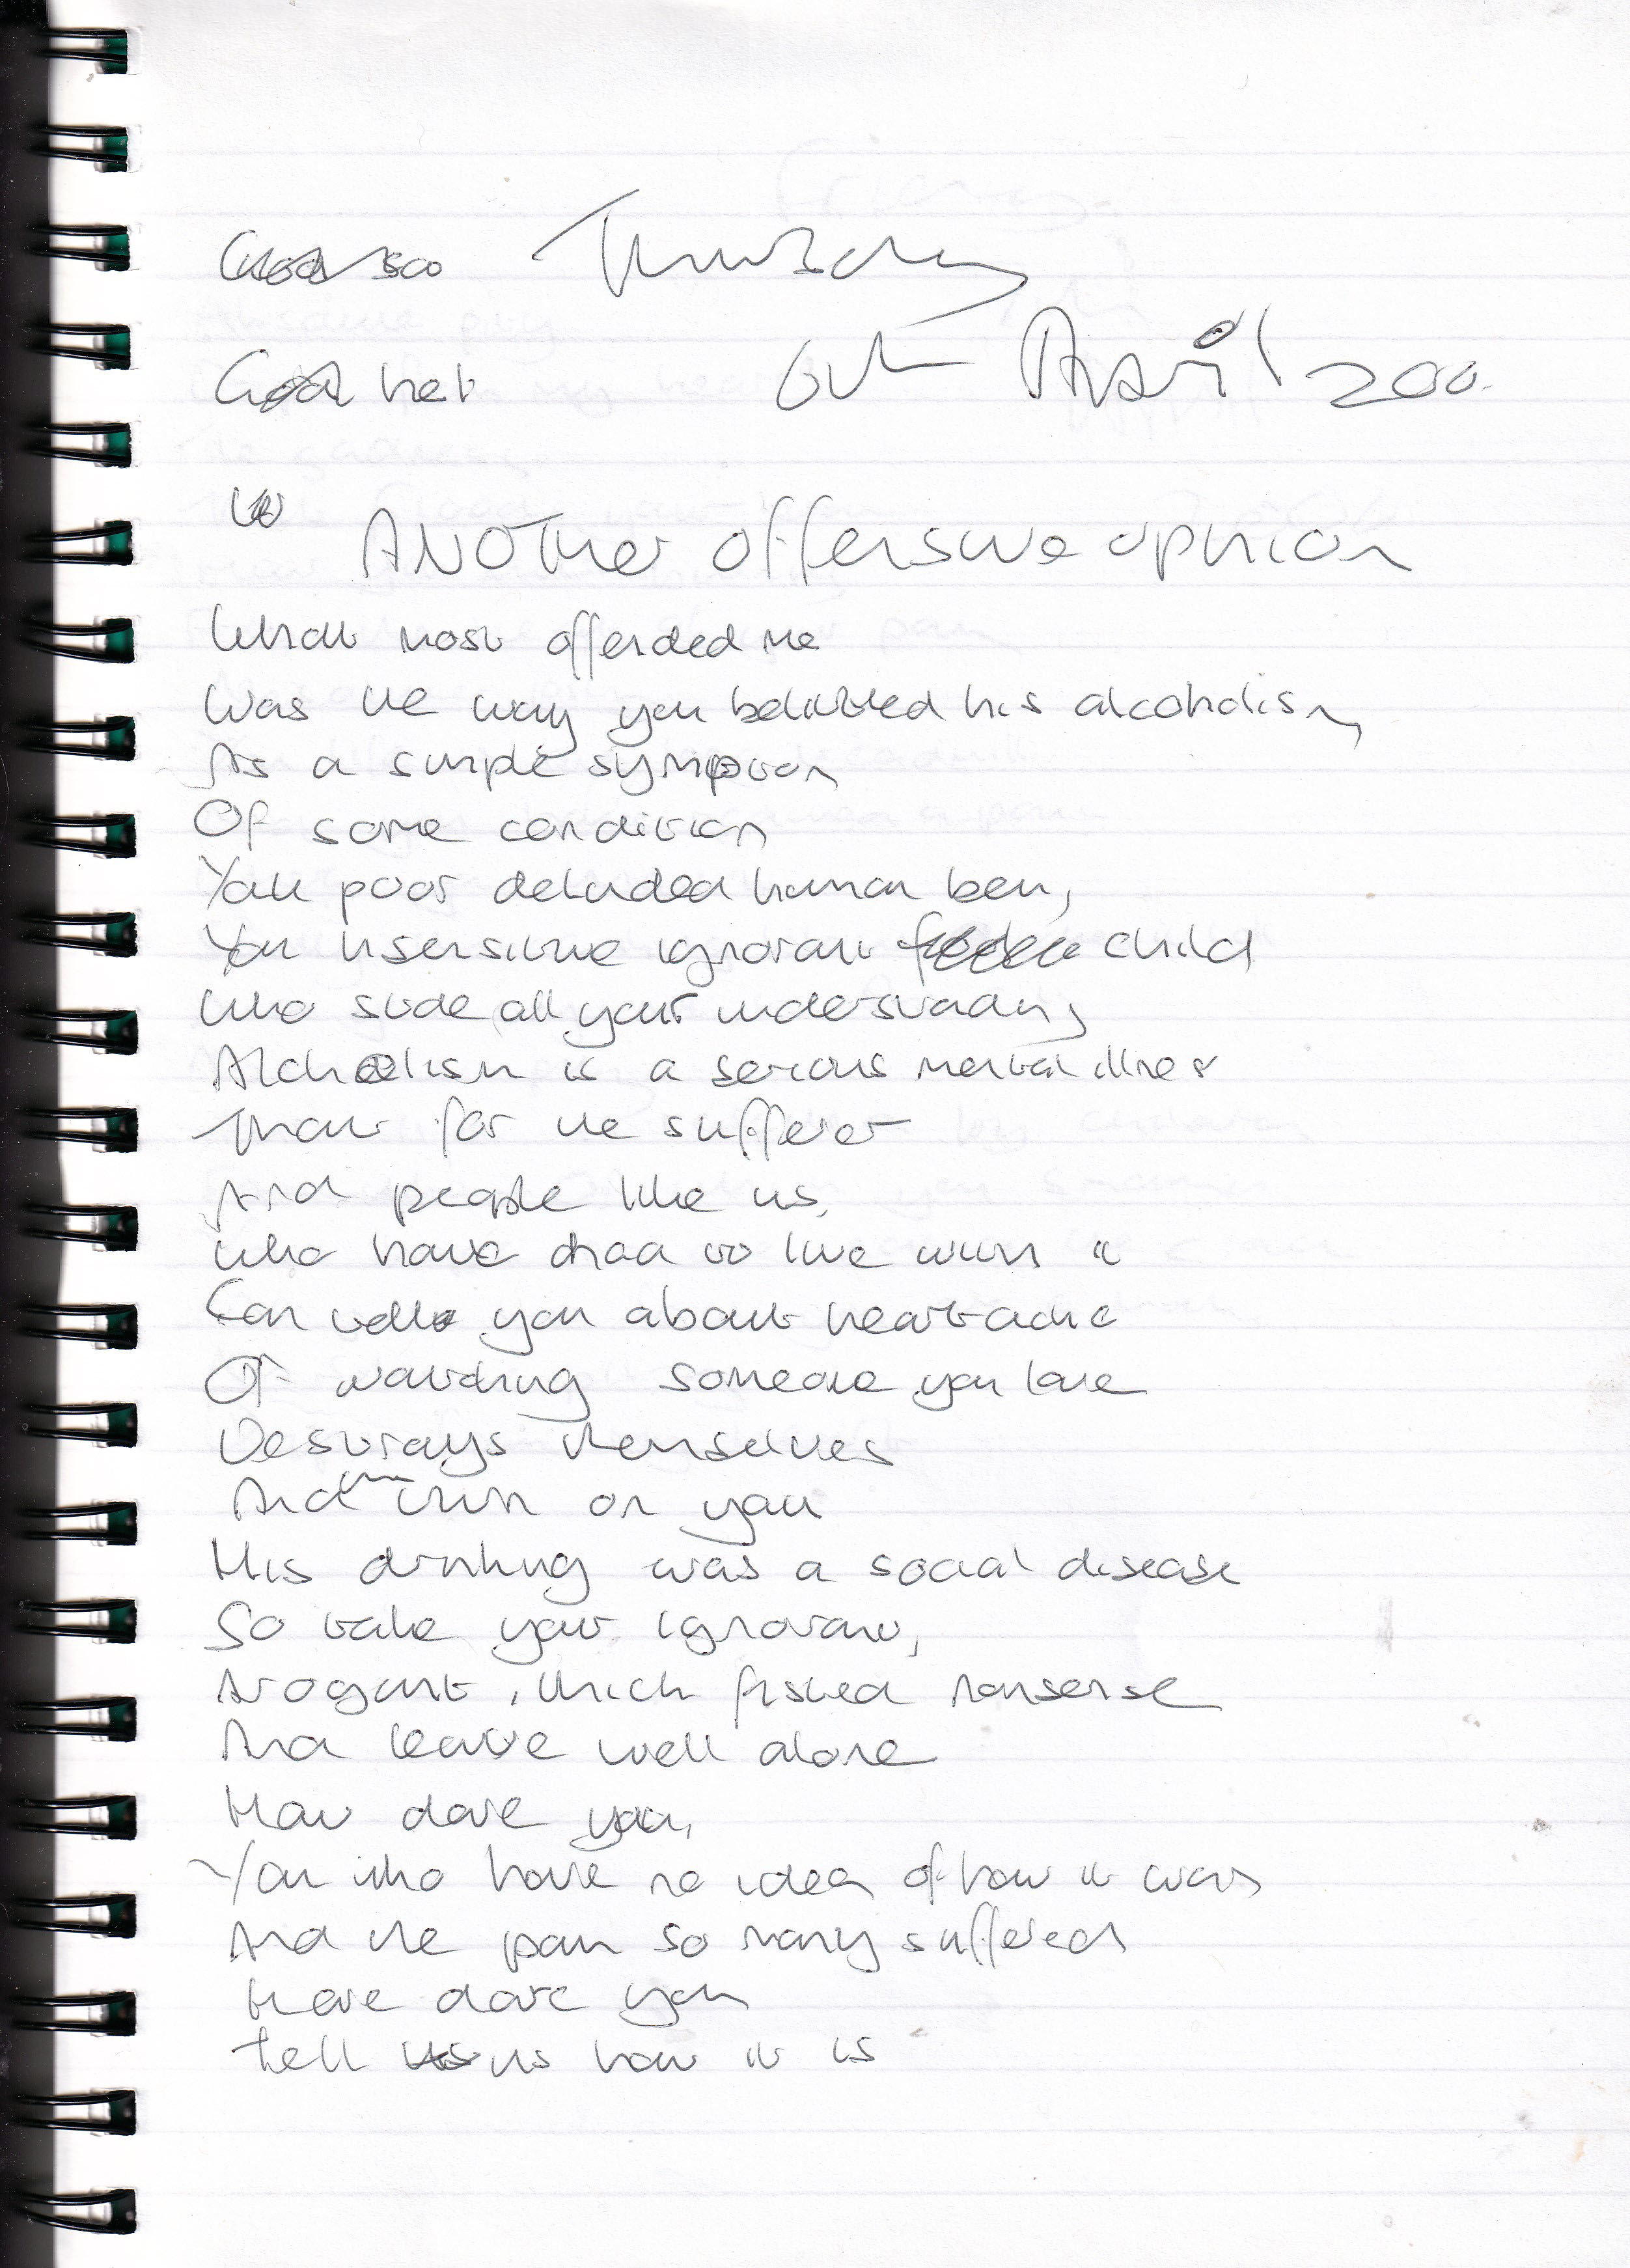 Thursday
April 200
ANOTher offensive opinion
What most offended me
Was the way you belittled his alcoholism
As a simple symptom
Of some condition
You poor deluded human
You insensitive ignorant child
Who all your understanding
Alchoolism is a serious mental illness
That for the sufferer
And people like us,
Who have had to live with it
Can tell you about heartache
Of watching someone you love
Destroys themselves
And turn on you
His drinking was a social disease
So take your ignorant,
Arogant, thick fisted nonsense
And leave well alone
How dare you,
You who have no idea of how it was
And the pain so many suffered
dare you
tell us how it is